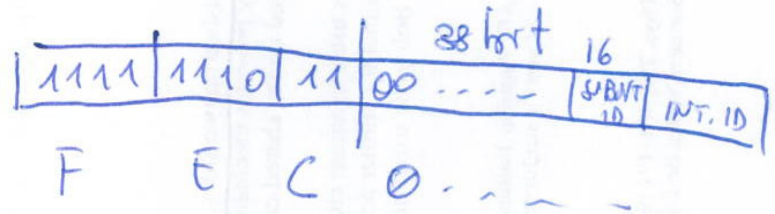 38 bit 16
1111 1110 11 00 .... SUBNT ID INT. ID
F E C 0 . - - -